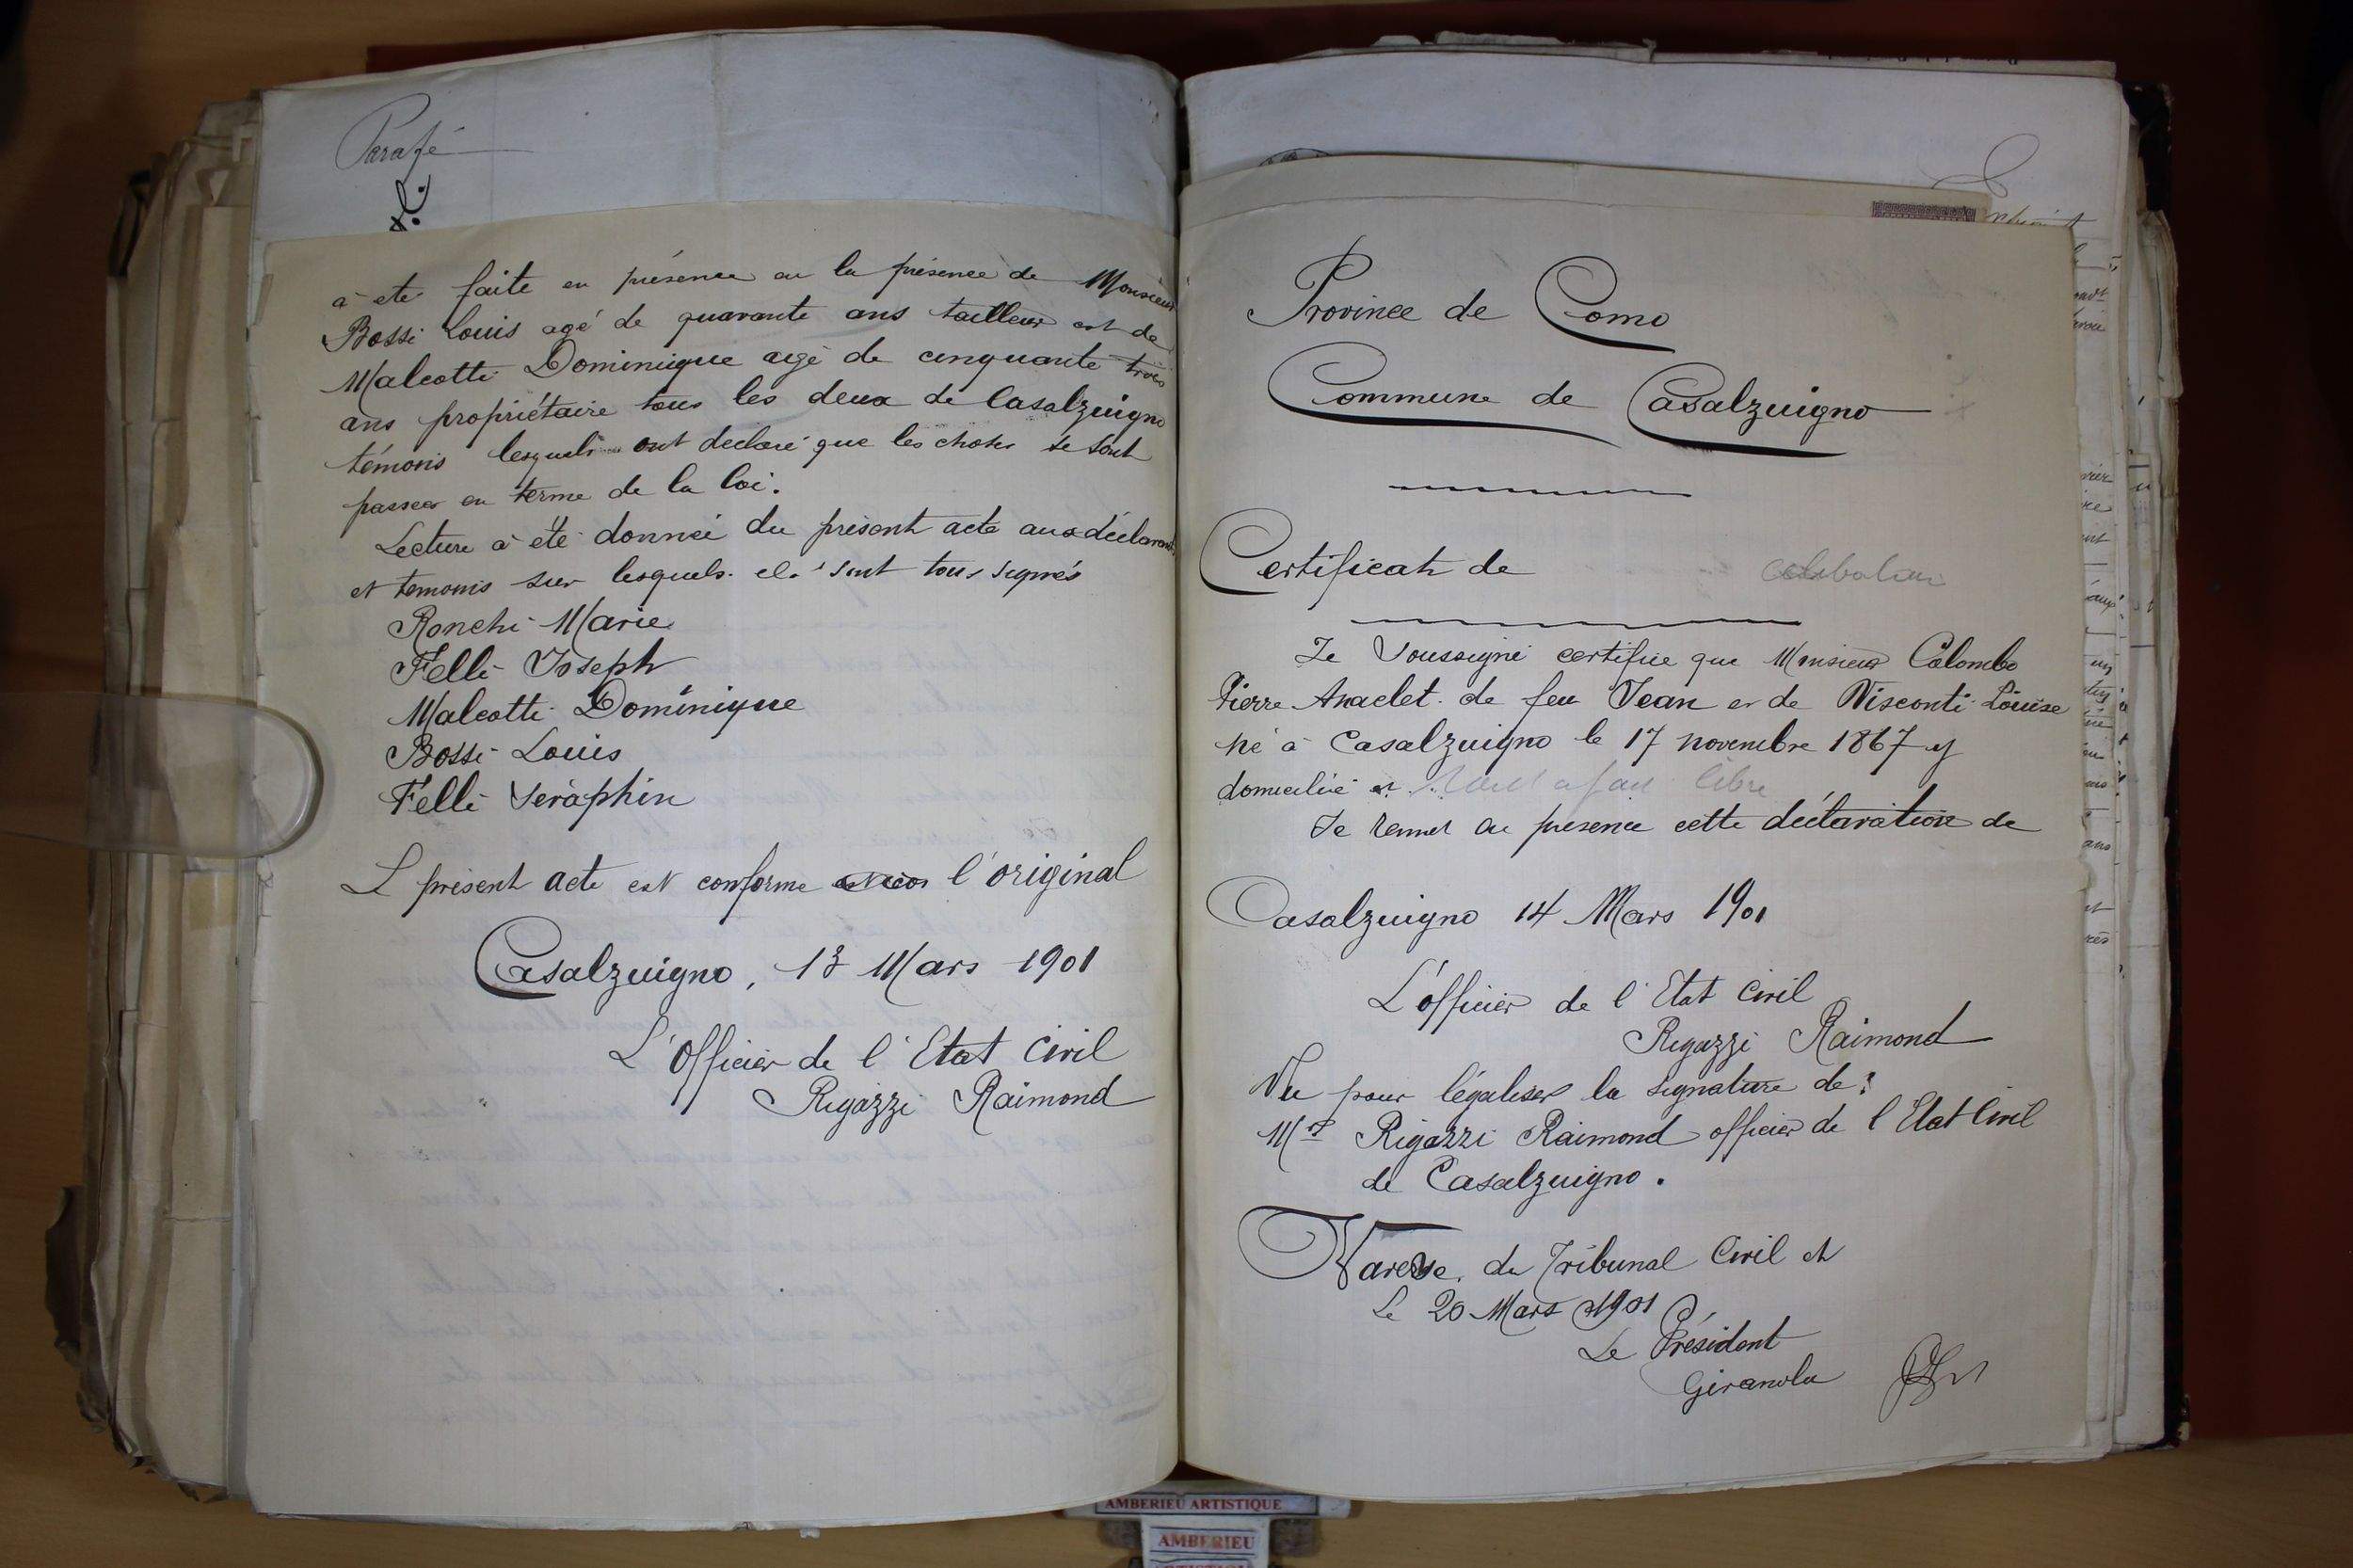 Parafé
à ete faite en présence ou la présence de Monsieur
Bossi Louis agé de quarante ans tailleur et de
Malcotti Dominique agé de cinquante trois
ans propriétaire tous les deux de Casalzuigno
témoris lesquels ont declaré que les choses se sont
passées en terme de la loi.
Lecture à été donnée du présent acte aux déclarants
et temonis sur lesquels se sont tous signés
Ronchi Marie
Felli Joseph
Malcotti Dominique
Bossi Louis
Felli Séraphin
L présent acte est conforme l'original
Casalzuigno, 13 Mars 1901
L'Officier de l'Etat Civil
Rigazzi Raimond
Province de Como
Commune de Casalzuigno
Certificat de
Je soussigné certifie que Monsieur Colombo
Pierre Anaclet de feu Jean et de Visconti Louise
né à Casalzuigno le 17 novembre 1867 y
domicilié et libre
Je remet au présence cette déclaration de
Casalzuigno 14 Mars 1901
L'officier de l'Etat Civil
Rigazzi Raimond
Vu pour légaliser la signature de:
Mr Rigazzi Raimond officier de l'Etat Civil
de Casalzuigno.
Varese du Tribunal Civil et
Le 20 Mars 1901
Le Président
Giranola
AMBERIEU ARTISTIQUE
AMBERIEU